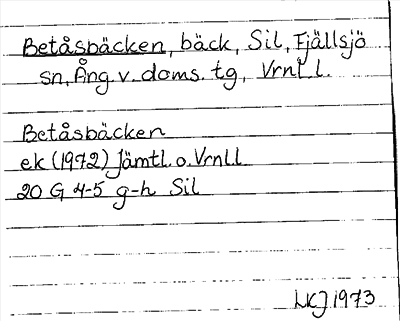 Betåsbäcken, bäck, Sil, Fjällsjö
sn, Ång. v. doms. tg, Vrnl l.
Betåsbäcken
ek (1972) Jämtl. o. Vrnl l.
20 G 4-5 g-h Sil
LKJ 1973